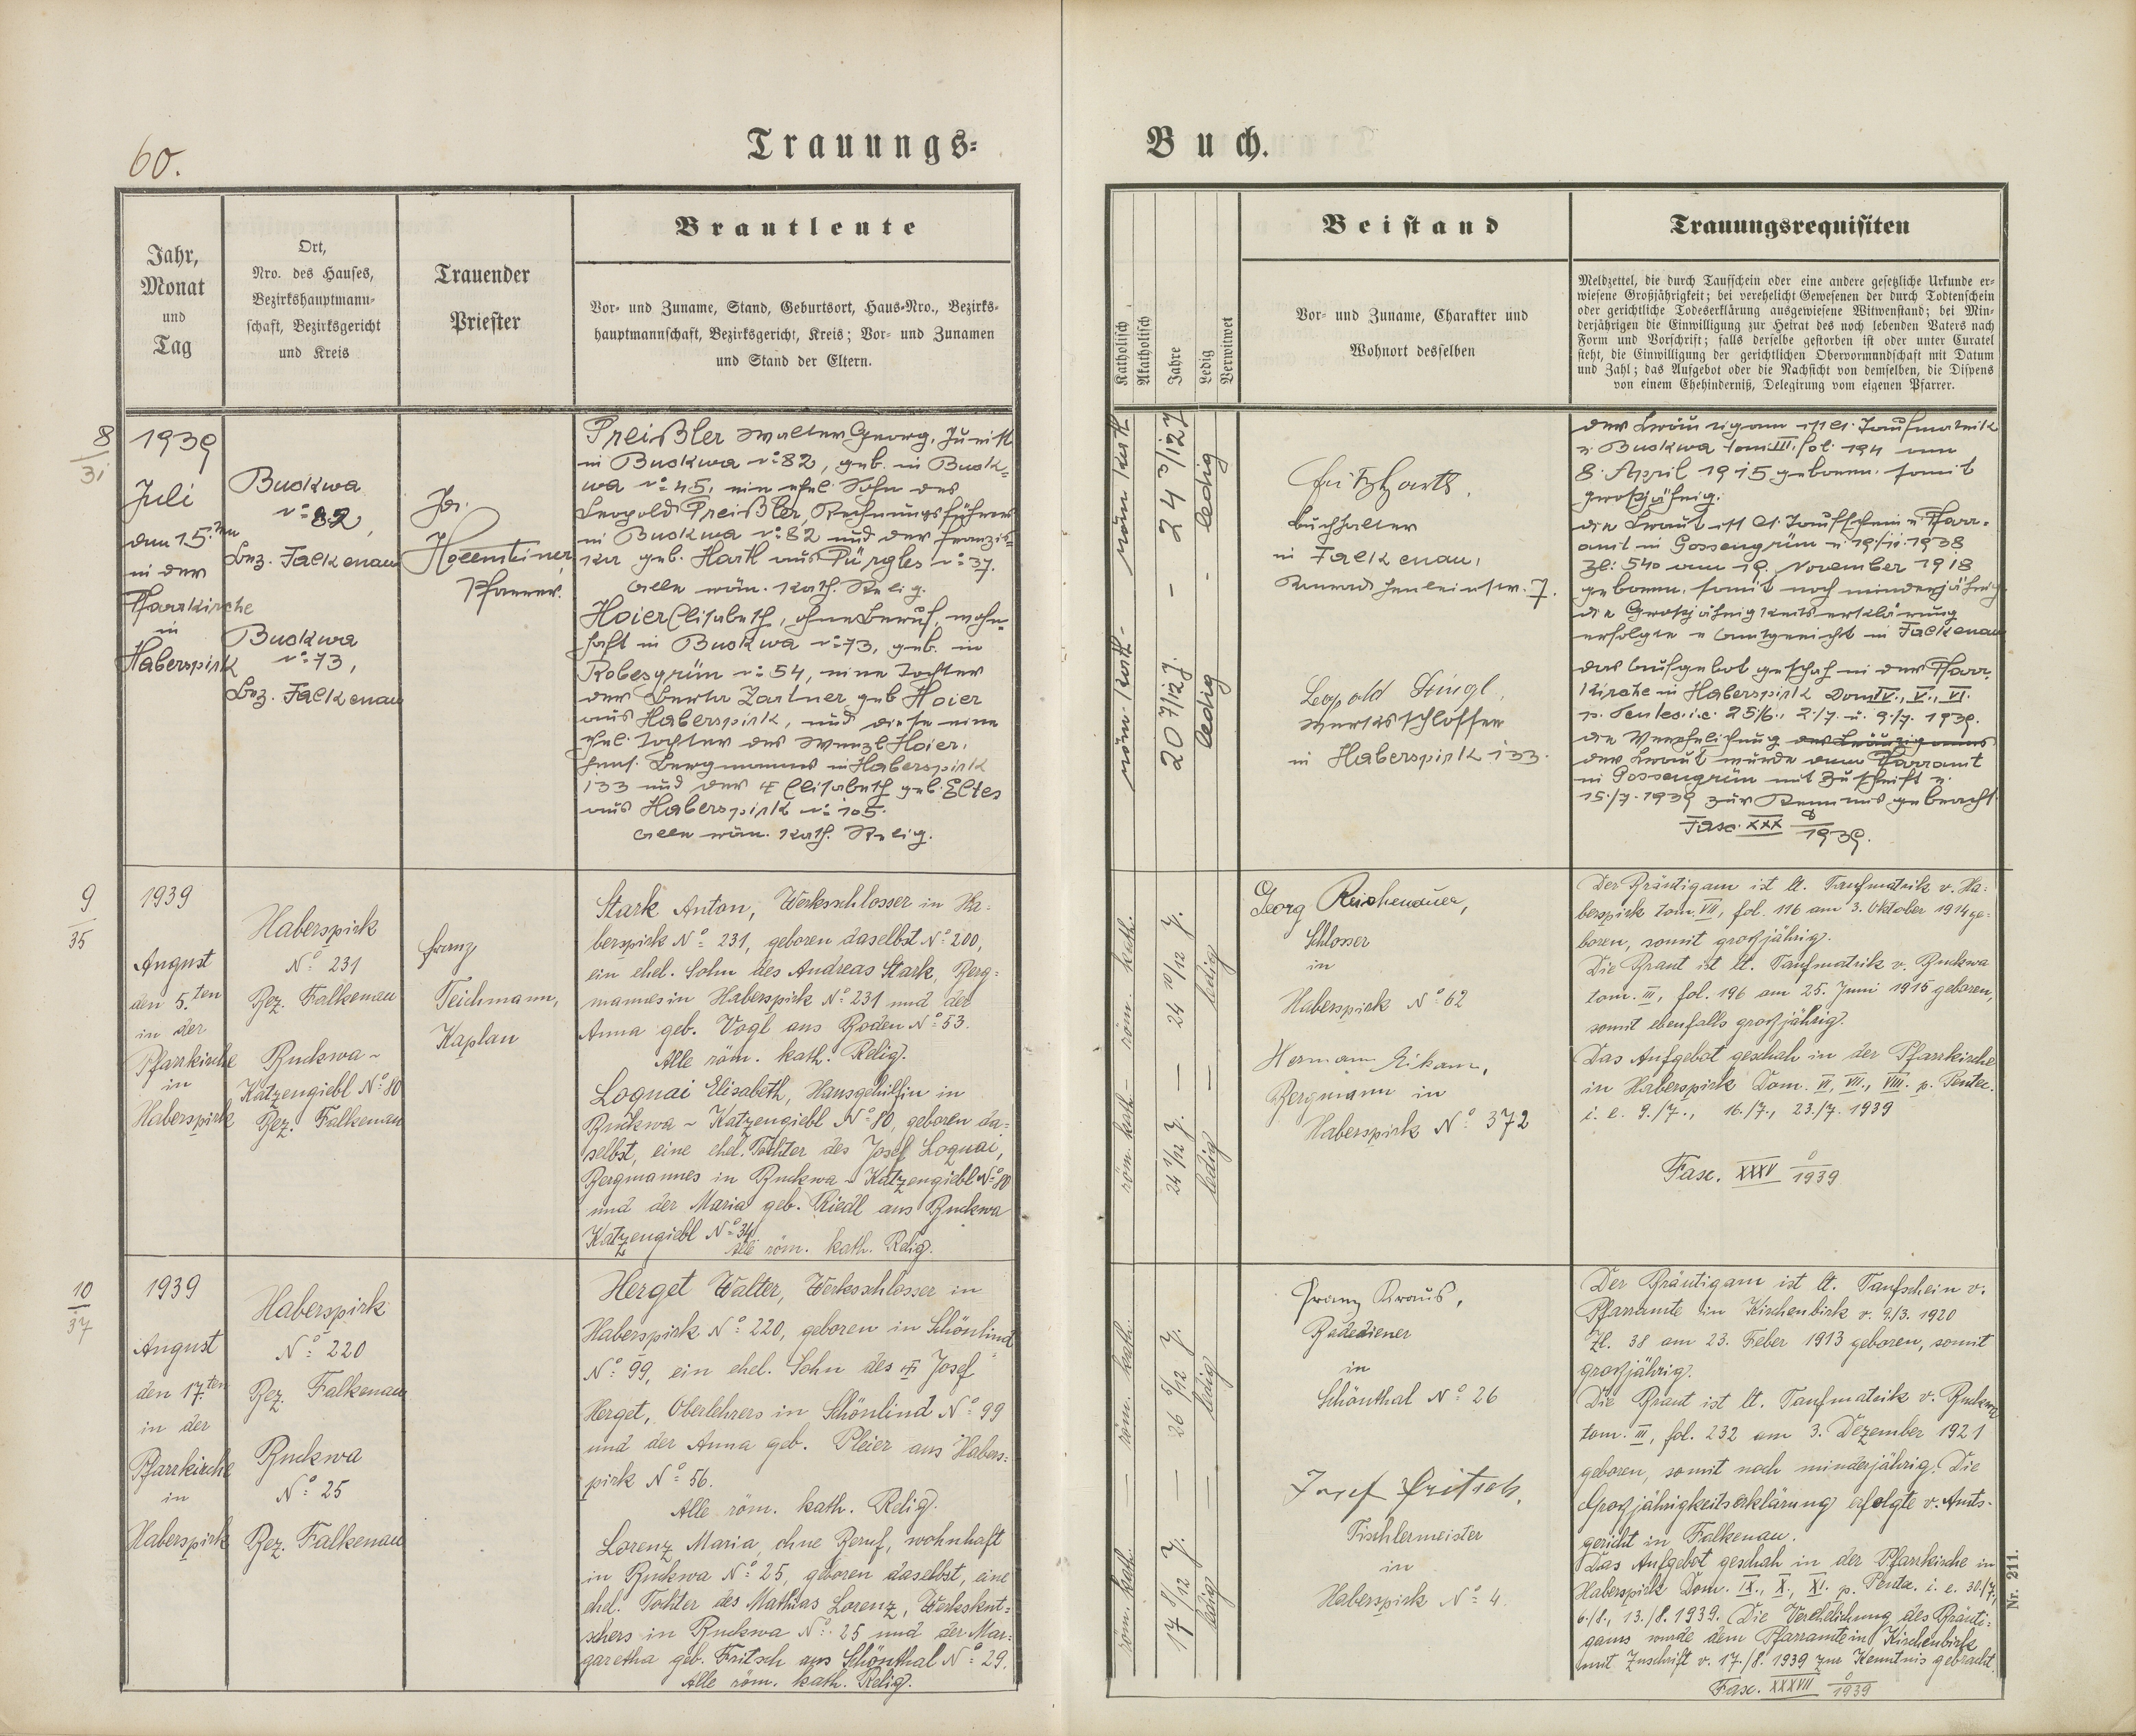 60.
Trauungs-
Buch.
Jahr,
Monat
und
Tag
Ort,
Nro. des Hauses,
Bezirkshauptmann-
schaft, Bezirksgericht
und Kreis
Trauender
Priester
Brautleute
Vor- und Zuname, Stand, Geburtsort, Haus-Nro., Bezirks-
hauptmannschaft, Bezirksgericht, Kreis; Vor- und Zunamen
und Stand der Eltern.
Katholisch
Akatholisch
Jahre
Ledig
Verwitwet
Beistand
Vor- und Zuname, Charakter und
Wohnort desselben
Trauungsrequisiten
Meldzettel, die durch Taufschein oder eine andere gesetzliche Urkunde er-
wiesene Großjährigkeit; bei verehelicht Gewesenen der durch Todtenschein
oder gerichtliche Todeserklärung ausgewiesene Witwenstand; bei Min-
derjährigen die Einwilligung zur Heirat des noch lebenden Vaters nach
Form und Vorschrift; falls derselbe gestorben ist oder unter Curatel
steht, die Einwilligung der gerichtlichen Obervormundschaft mit Datum
und Zahl; das Aufgebot oder die Nachsicht von demselben, die Dispens
von einem Ehehinderniß, Delegirung vom eigenen Pfarrer.
8
31
1939
Juli
den 15.ten
in der
Pfarrkirche
in
Haberspirk
Buckwa
N: 82,
Bez. Falkenau
Buckwa
N: 73,
Bez. Falkenau
Pfarrer.
Preißler Walter Georg, Jurist
in Buckwa N: 82, geb. in Buck-
wa N: 45, ein ehel. Sohn des
Leopold Preißler, Rechnungsführer
in Buckwa N: 82 und der Franzis-
ka geb. Hartl aus Pürgles N: 37.
Alle röm. kath. Relig.
Hoier Elisabeth, ohne Beruf, wohn-
haft in Buckwa N: 73, geb. in
Robesgrün N: 54, eine Tochter
der Berta Zartner, geb. Hoier
aus Haberspirk, und diese eine
ehel. Tochter des Wenzl Hoier,
Bergmannes in Haberspirk
133 und der Elisabeth geb. Eltes
aus Haberspirk N: 105.
Alle röm. kath. Relig.
röm. kath. - röm. kath.
20 7/12 J. - 24 3/12 J
ledig - ledig
Buchhalter
in Falkenau,
Konrad Henleinstr. 7.
Leopold Stingl,
Werksschlosser
in Haberspirk 133.
Der Bräutigam ist lt. Taufmatrik
v. Buckwa tom. III, fol. 194 am
8. April 1915 geboren, somit
großjährig.
Die Braut ist lt. Taufschein v. Pfarr-
amt in Gossengrün v. 19./11. 1938
Zl: 540 am 19. November 1918
geboren, somit noch minderjährig
die Großjährigkeitserklärung
erfolgte v. Amtsgericht in Falkenau
das Aufgebot geschah in der Pfarr-
kirche in Haberspirk Dom IV., V., VI.
p. Pentec. i.e. 25./6., 2./7. u. 9./7. 1939.
die Verehelichung des Bräutigams
der Braut wurde dem Pfarramt
in Gossengrün mit Zuschrift v.
15./7. 1939 zur Kenntnis gebracht.
Fasc. XXX 8/1939.
9
35
1939
August
den 5.ten
in der
Pfarrkirche
in
Haberspirk
Haberspirk
No: 231
Bez. Falkenau
Buckwa -
Katzengiebl No: 80
Bez. Falkenau
Franz
Teichmann,
Kaplan
Stark Anton, Werksschlosser in Ha-
berspirk No: 231, geboren daselbst No: 200,
ein ehel. Sohn des Andreas Stark, Berg-
mannes in Haberspirk No: 231 und der
Anna geb. Vogl aus Boden No: 53.
Alle röm. kath. Relig.
Loquai Elisabeth, Hausgehilfin in
Buckwa - Katzengiebl No: 80, geboren da-
selbst, eine ehel. Tochter des Josef Loquai,
Bergmannes in Buckwa - Katzengiebl No: 80
und der Maria geb. Riedl aus Buckwa
Katzengiebl No: 34.
Alle röm. kath. Relig.
röm. kath. - röm. kath.
24 1/12 J. - 24 10/12 J.
ledig - ledig
Georg Reichenauer,
Schlosser
in
Haberspirk No: 62
Hermann Eikam,
Bergmann in
Haberspirk No: 372
Der Bräutigam ist lt. Taufmatrik v. Ha-
berspirk tom. VII, fol. 116 am 3. Oktober 1914 ge-
boren, somit großjährig.
Die Braut ist lt. Taufmatrik v. Buckwa
tom. III, fol. 196 am 25. Juni 1915 geboren,
somit ebenfalls großjährig.
Das Aufgebot geschah in der Pfarrkirche
in Haberspirk Dom. VI., VII., VIII. p. Pentec.
i. e. 9./7., 16./7., 23./7. 1939
Fasc. XXXV 0/1939
10
37
1939
August
den 17.ten
in der
Pfarrkirche
in
Haberspirk
Haberspirk
No: 220
Bez. Falkenau
Buckwa
No: 25
Bez. Falkenau
Herget Walter, Werksschlosser in
Haberspirk No: 220, geboren in Schönlind
No: 99, ein ehel. Sohn des ✝ Josef
Herget, Oberlehrers in Schönlind No: 99
und der Anna geb. Pleier aus Habers-
pirk No: 56.
Alle röm. kath. Relig.
Lorenz Maria, ohne Beruf, wohnhaft
in Buckwa No: 25, geboren daselbst, eine
ehel. Tochter des Mathias Lorenz, Werkskut-
schers in Buckwa No: 25 und der Mar-
garetha geb. Fritsch aus Schönthal No: 29.
Alle röm. kath. Relig.
röm. kath. - röm. kath.
17 8/12 J. - 26 5/12 J.
ledig - ledig
Franz Kraus,
Badediener
in
Schönthal No: 26
Josef Fritsch,
Tischlermeister
in
Haberspirk No: 4.
Der Bräutigam ist lt. Taufschein v.
Pfarramte in Kirchenbirk v. 9./3. 1920
Zl. 38 am 23. Feber 1913 geboren, somit
großjährig.
Die Braut ist lt. Taufmatrik v. Buckwa
tom. III, fol. 232 am 3. Dezember 1921
geboren, somit noch minderjährig. Die
Großjährigkeitserklärung erfolgte v. Amts-
gericht in Falkenau.
Das Aufgebot geschah in der Pfarrkirche in
Haberspirk Dom. IX., X., XI. p. Pentec. i. e. 30./7.,
6./8., 13./8. 1939. Die Verehelichung des Bräuti-
gams wurde dem Pfarramte in Kirchenbirk
mit Zuschrift v. 17./8. 1939 zur Kenntnis gebracht.
Fasc. XXXVII 0/1939
Nr. 211.